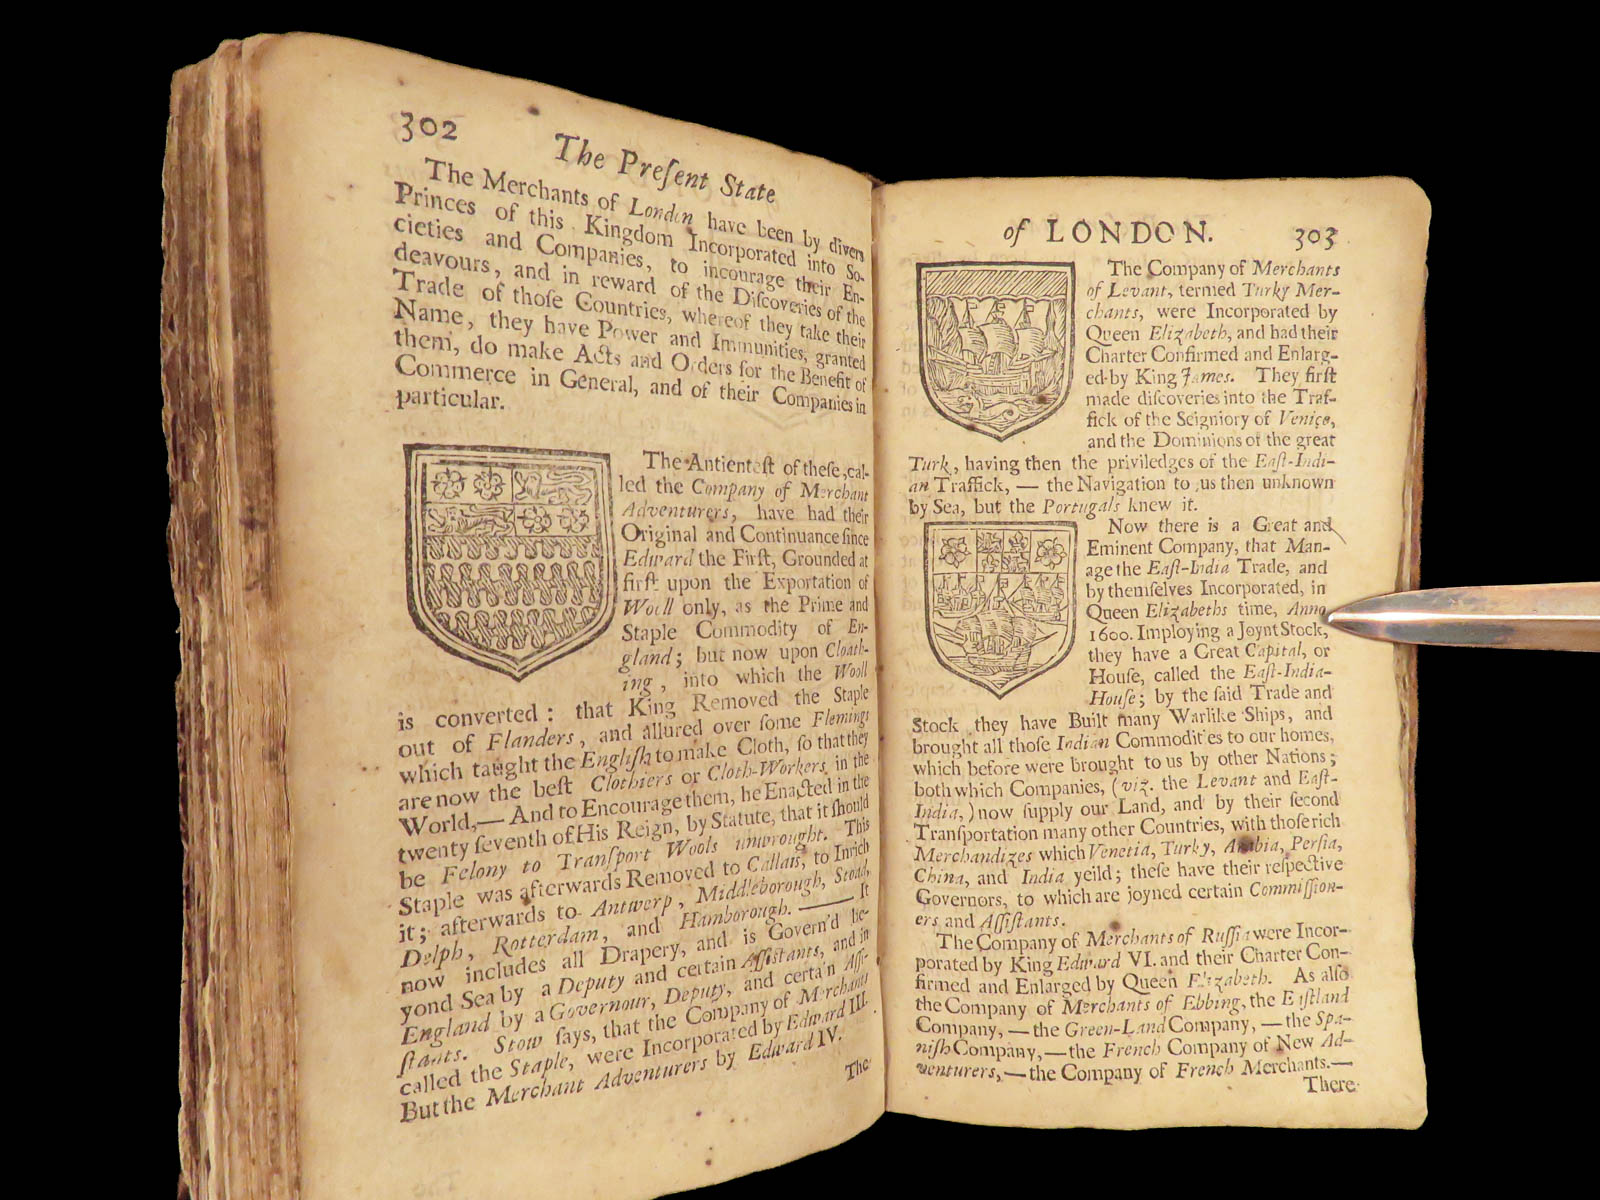 302
The Preſent State
The Merchants of London have been by divers
Princes of this Kingdom Incorporated into So-
cieties and Companies, to incourage their En-
deavours, and in reward of the Diſcoveries of the
Trade of thoſe Countries, whereof they take their
Name, they have Power and Immunities, granted
them, do make Acts and Orders for the Benefit of
Commerce in General, and of their Companies in
particular.
The Antienteſt of theſe, cal-
led the Company of Merchant
Adventurers, have had their
Original and Continuance ſince
Edward the Firſt, Grounded at
firſt upon the Exportation of
Wooll only, as the Prime and
Staple Commodity of En-
gland; but now upon Cloath-
ing, into which the Wooll
is converted: that King Removed the Staple
out of Flanders, and allured over ſome Flemings
which taught the Engliſh to make Cloth, ſo that they
are now the beſt Clothiers or Cloth-Workers in the
World,— And to Encourage them, he Enacted in the
twenty ſeventh of His Reign, by Statute, that it ſhould
be Felony to Tranſport Wools unwrought. This
Staple was afterwards Removed to Callais, to Inrich
it; afterwards to Antwerp, Middleborough, Stoad,
Delph, Rotterdam, and Hamborough. —— It
now includes all Drapery, and is Govern'd be-
yond Sea by a Deputy and certain Aſſistants, and in
England by a Governour, Deputy, and certain Aſſi-
ſtants. Stow ſays, that the Company of Merchants
called the Staple, were Incorporated by Edward III.
But the Merchant Adventurers by Edward IV.
The
of LONDON.
303
The Company of Merchants
of Levant, termed Turky Mer-
chants, were Incorporated by
Queen Elizabeth, and had their
Charter Confirmed and Enlarg-
ed by King James. They firſt
made diſcoveries into the Traf-
fick of the Seigniory of Venice,
and the Dominions of the great
Turk, having then the priviledges of the Eaſt-Indi-
an Traffick, — the Navigation to us then unknown
by Sea, but the Portugals knew it.
Now there is a Great and
Eminent Company, that Man-
age the Eaſt-India Trade, and
by themſelves Incorporated, in
Queen Elizabeths time, Anno
1600. Imploying a Joynt Stock,
they have a Great Capital, or
Houſe, called the Eaſt-India-
Houſe; by the ſaid Trade and
Stock they have Built many Warlike Ships, and
brought all thoſe Indian Commodities to our homes,
which before were brought to us by other Nations;
both which Companies, (viz. the Levant and Eaſt-
India,) now ſupply our Land, and by their ſecond
Tranſportation many other Countries, with thoſe rich
Merchandizes which Venetia, Turky, Arabia, Perſia,
China, and India yeild; theſe have their reſpective
Governors, to which are joyned certain Commiſſion-
ers and Aſſiſtants.
The Company of Merchants of Ruſſia were Incor-
porated by King Edward VI. and their Charter Con-
firmed and Enlarged by Queen Elizabeth. As alſo
the Company of Merchants of Ebbing, the Eaſtland
Company, — the Green-Land Company, — the Spa-
niſh Company, — the French Company of New Ad-
venturers, — the Company of French Merchants.—
There